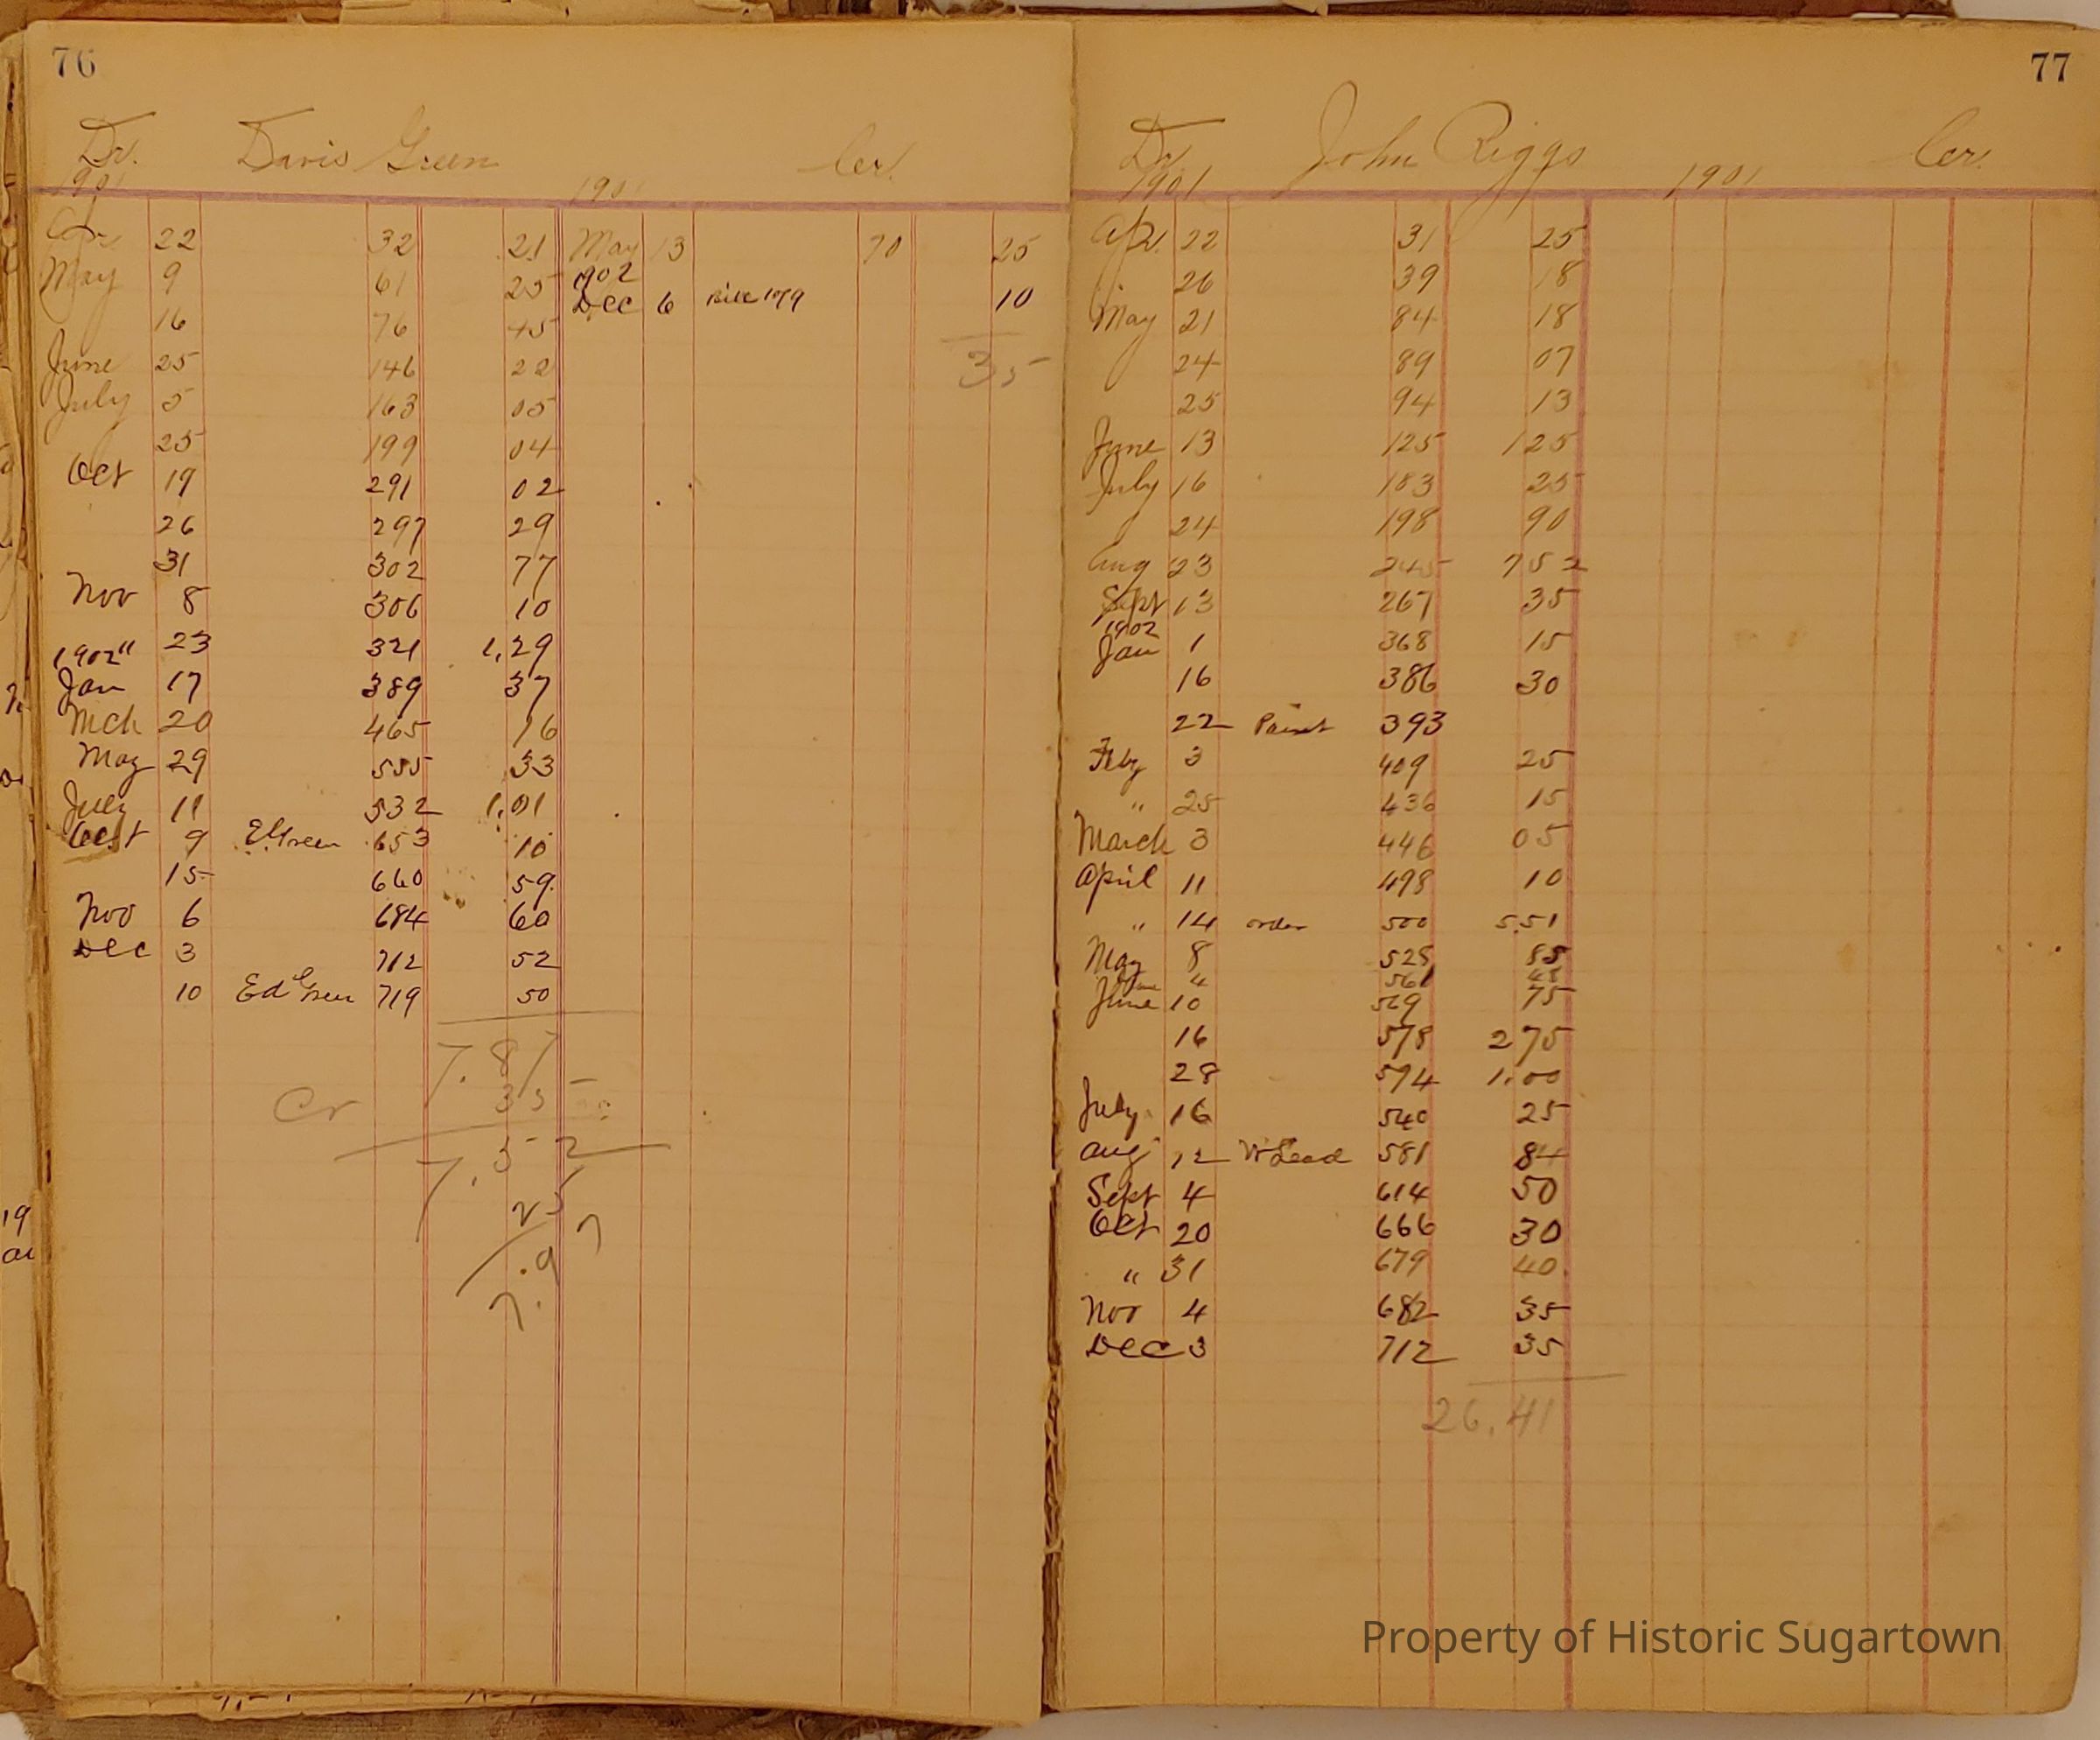 76
Dr. Davis Green Cr.
1901 1901
Apr 22 32 21 May 13 70 25
May 9 61 25 1902
16 76 45 Dec 6 Bill 1079 10
June 25 146 22 35
July 5 163 05
25 199 04
Oct 19 291 02
26 297 29
31 302 77
Nov 8 306 10
" 23 321 1,29
1902
Jan 17 389 37
Mch 20 465 16
May 29 555 33
July 11 532 1,01
Oct 9 E Green 653 10
15 660 59
Nov 6 684 60
Dec 3 712 52
10 Ed Green 719 50
7.87
Cr 35
7.52
25
7
.9
7.
77
Dr John Riggs Cr.
1901 1901
Apr. 22 31 25
26 39 18
May 21 84 18
24 89 07
25 94 13
June 13 125 125
July 16 183 25
24 198 90
Aug 23 245 752
Sept 13 267 35
1902
Jan 1 368 15
16 386 30
22 Paint 393
Feby 3 409 25
" 25 436 15
March 3 446 05
April 11 498 10
" 14 order 500 5.51
May 8 528 85
June 4 561 45
June 10 569 75
16 578 2 75
28 594 1.00
July 16 540 25
Aug 12 W Lead 581 84
Sept 4 614 50
Oct 20 666 30
" 31 679 40
Nov 4 682 35
Dec 3 712 35
26.41
Property of Historic Sugartown